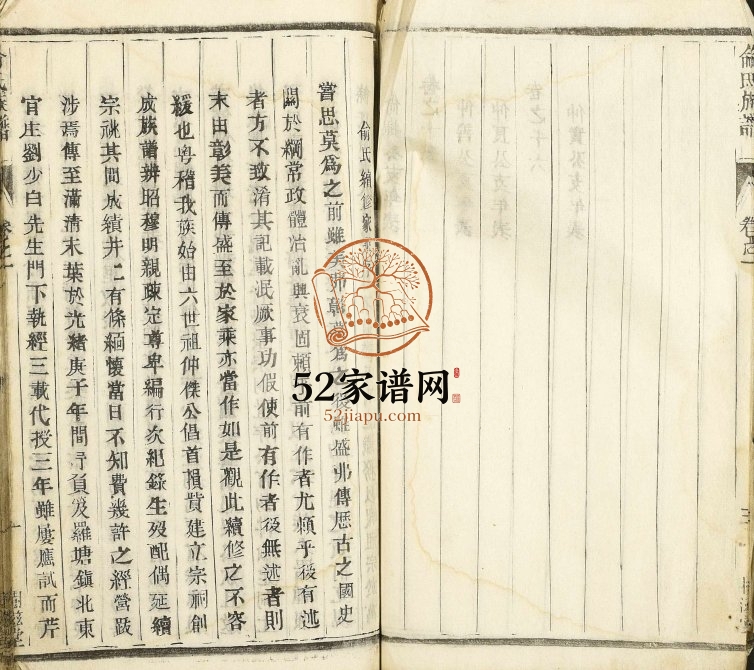 俞氏族譜
卷之一
俞氏續修家
嘗思莫為之前雖美弗為之後雖盛弗傳歷古之國史
關於綱常政體治亂興衰固賴前有作者尤賴乎後有述
者方不致淆其記載泯厥事功假使前有作者後無述者則
末由彰美而傳盛至於家乘亦當作如是觀此續修之不容
緩也粵稽我族始由六世祖仲傑公倡首捐貲建立宗祠創
成族譜辨昭穆明親疎定尊卑編行次紀錄生歿配偶延續
宗祧其間成績井二有條緬懷當日不知費幾許之經營跋
涉焉傳至滿清末葉於光緒庚子年間予負笈羅塘鎮北東
官庄劉少白先生門下執經三載代授三年雖屢應試而芹
卷之一
52家谱网
52jiapu.com